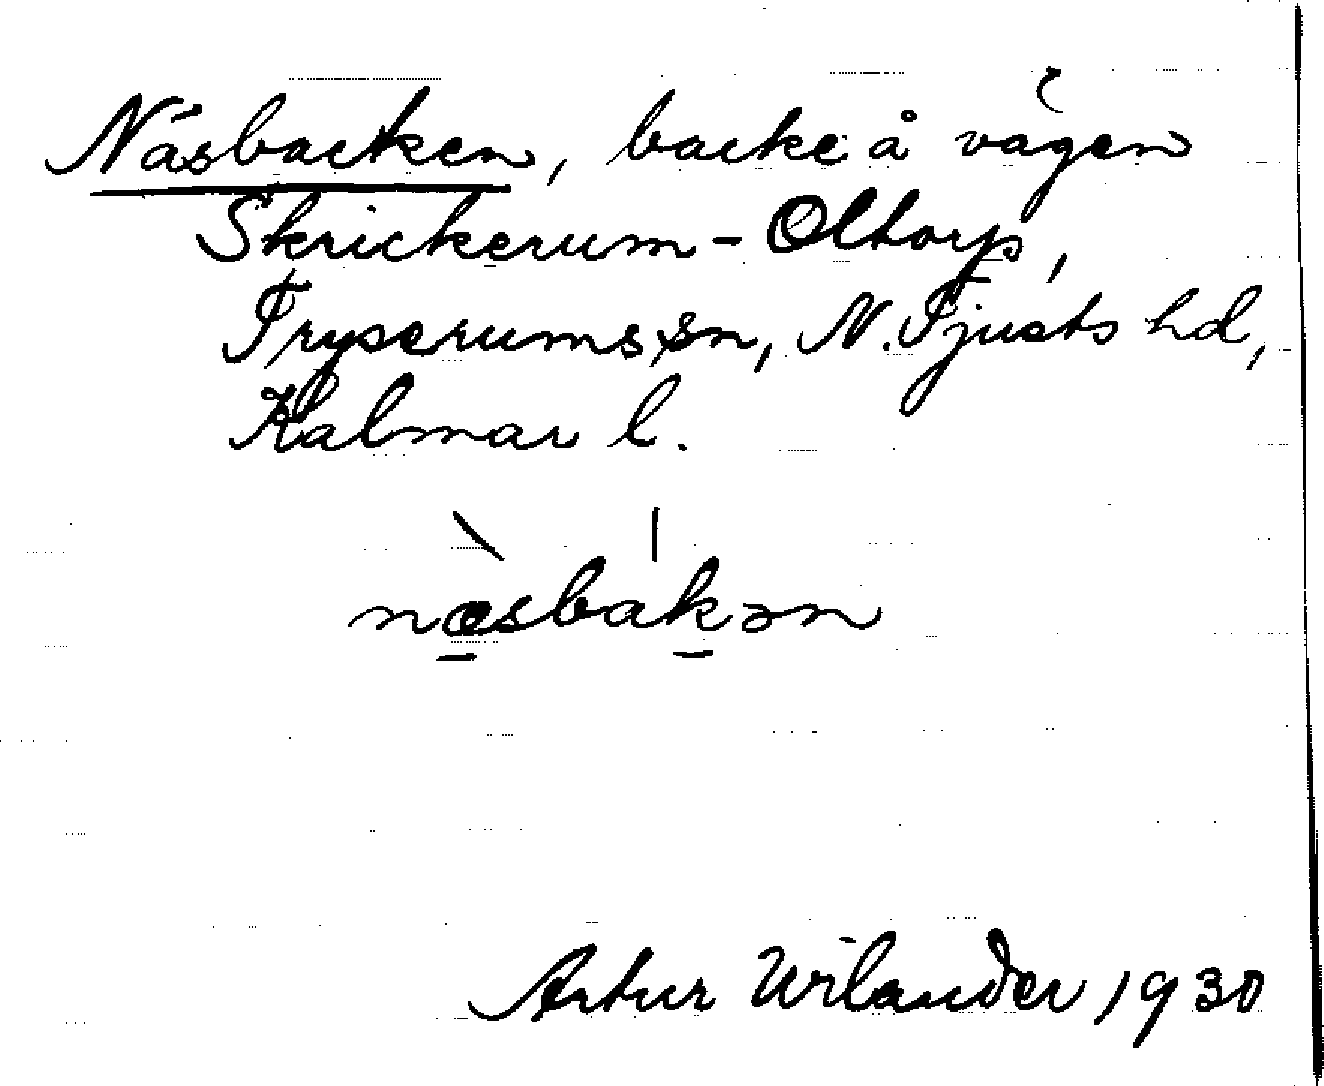 Näsbacken, backe å vägen
Skrickerum - Oltorp,
Tryserums sn, N. Tjusts hd,
Kalmar l.
næ̀sbákən
Artur Wilander 1930